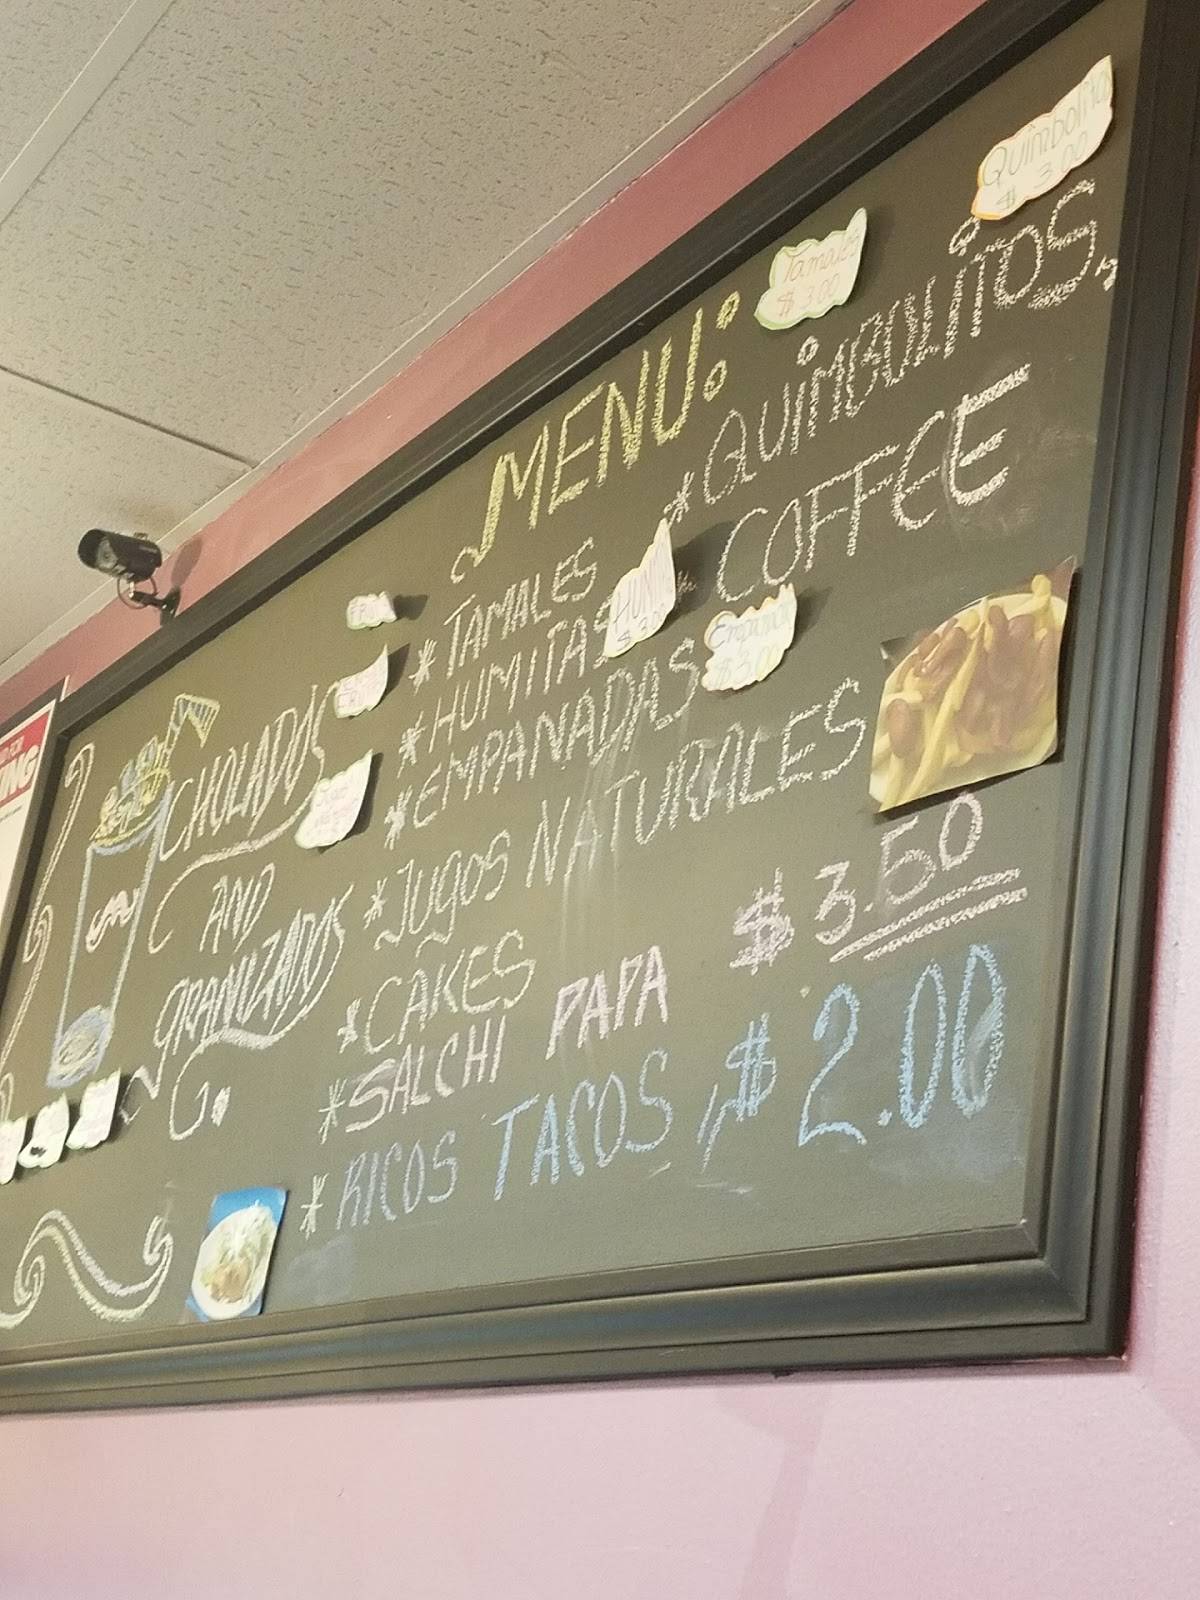 MENU:
Tamales
$ 3.00
Quimbolito
$ 3.00
* TAMALES
* HUMITAS
$ 3.00
* EMPANADAS
$3.00
* JUGOS NATURALES
* CAKES
* SALCHI PAPA $ 3.50
* RICOS TACOS, $ 2.00
* QUIMBOLITOS,
COFFEE
CHOLADOS
AND
GRANIZADOS